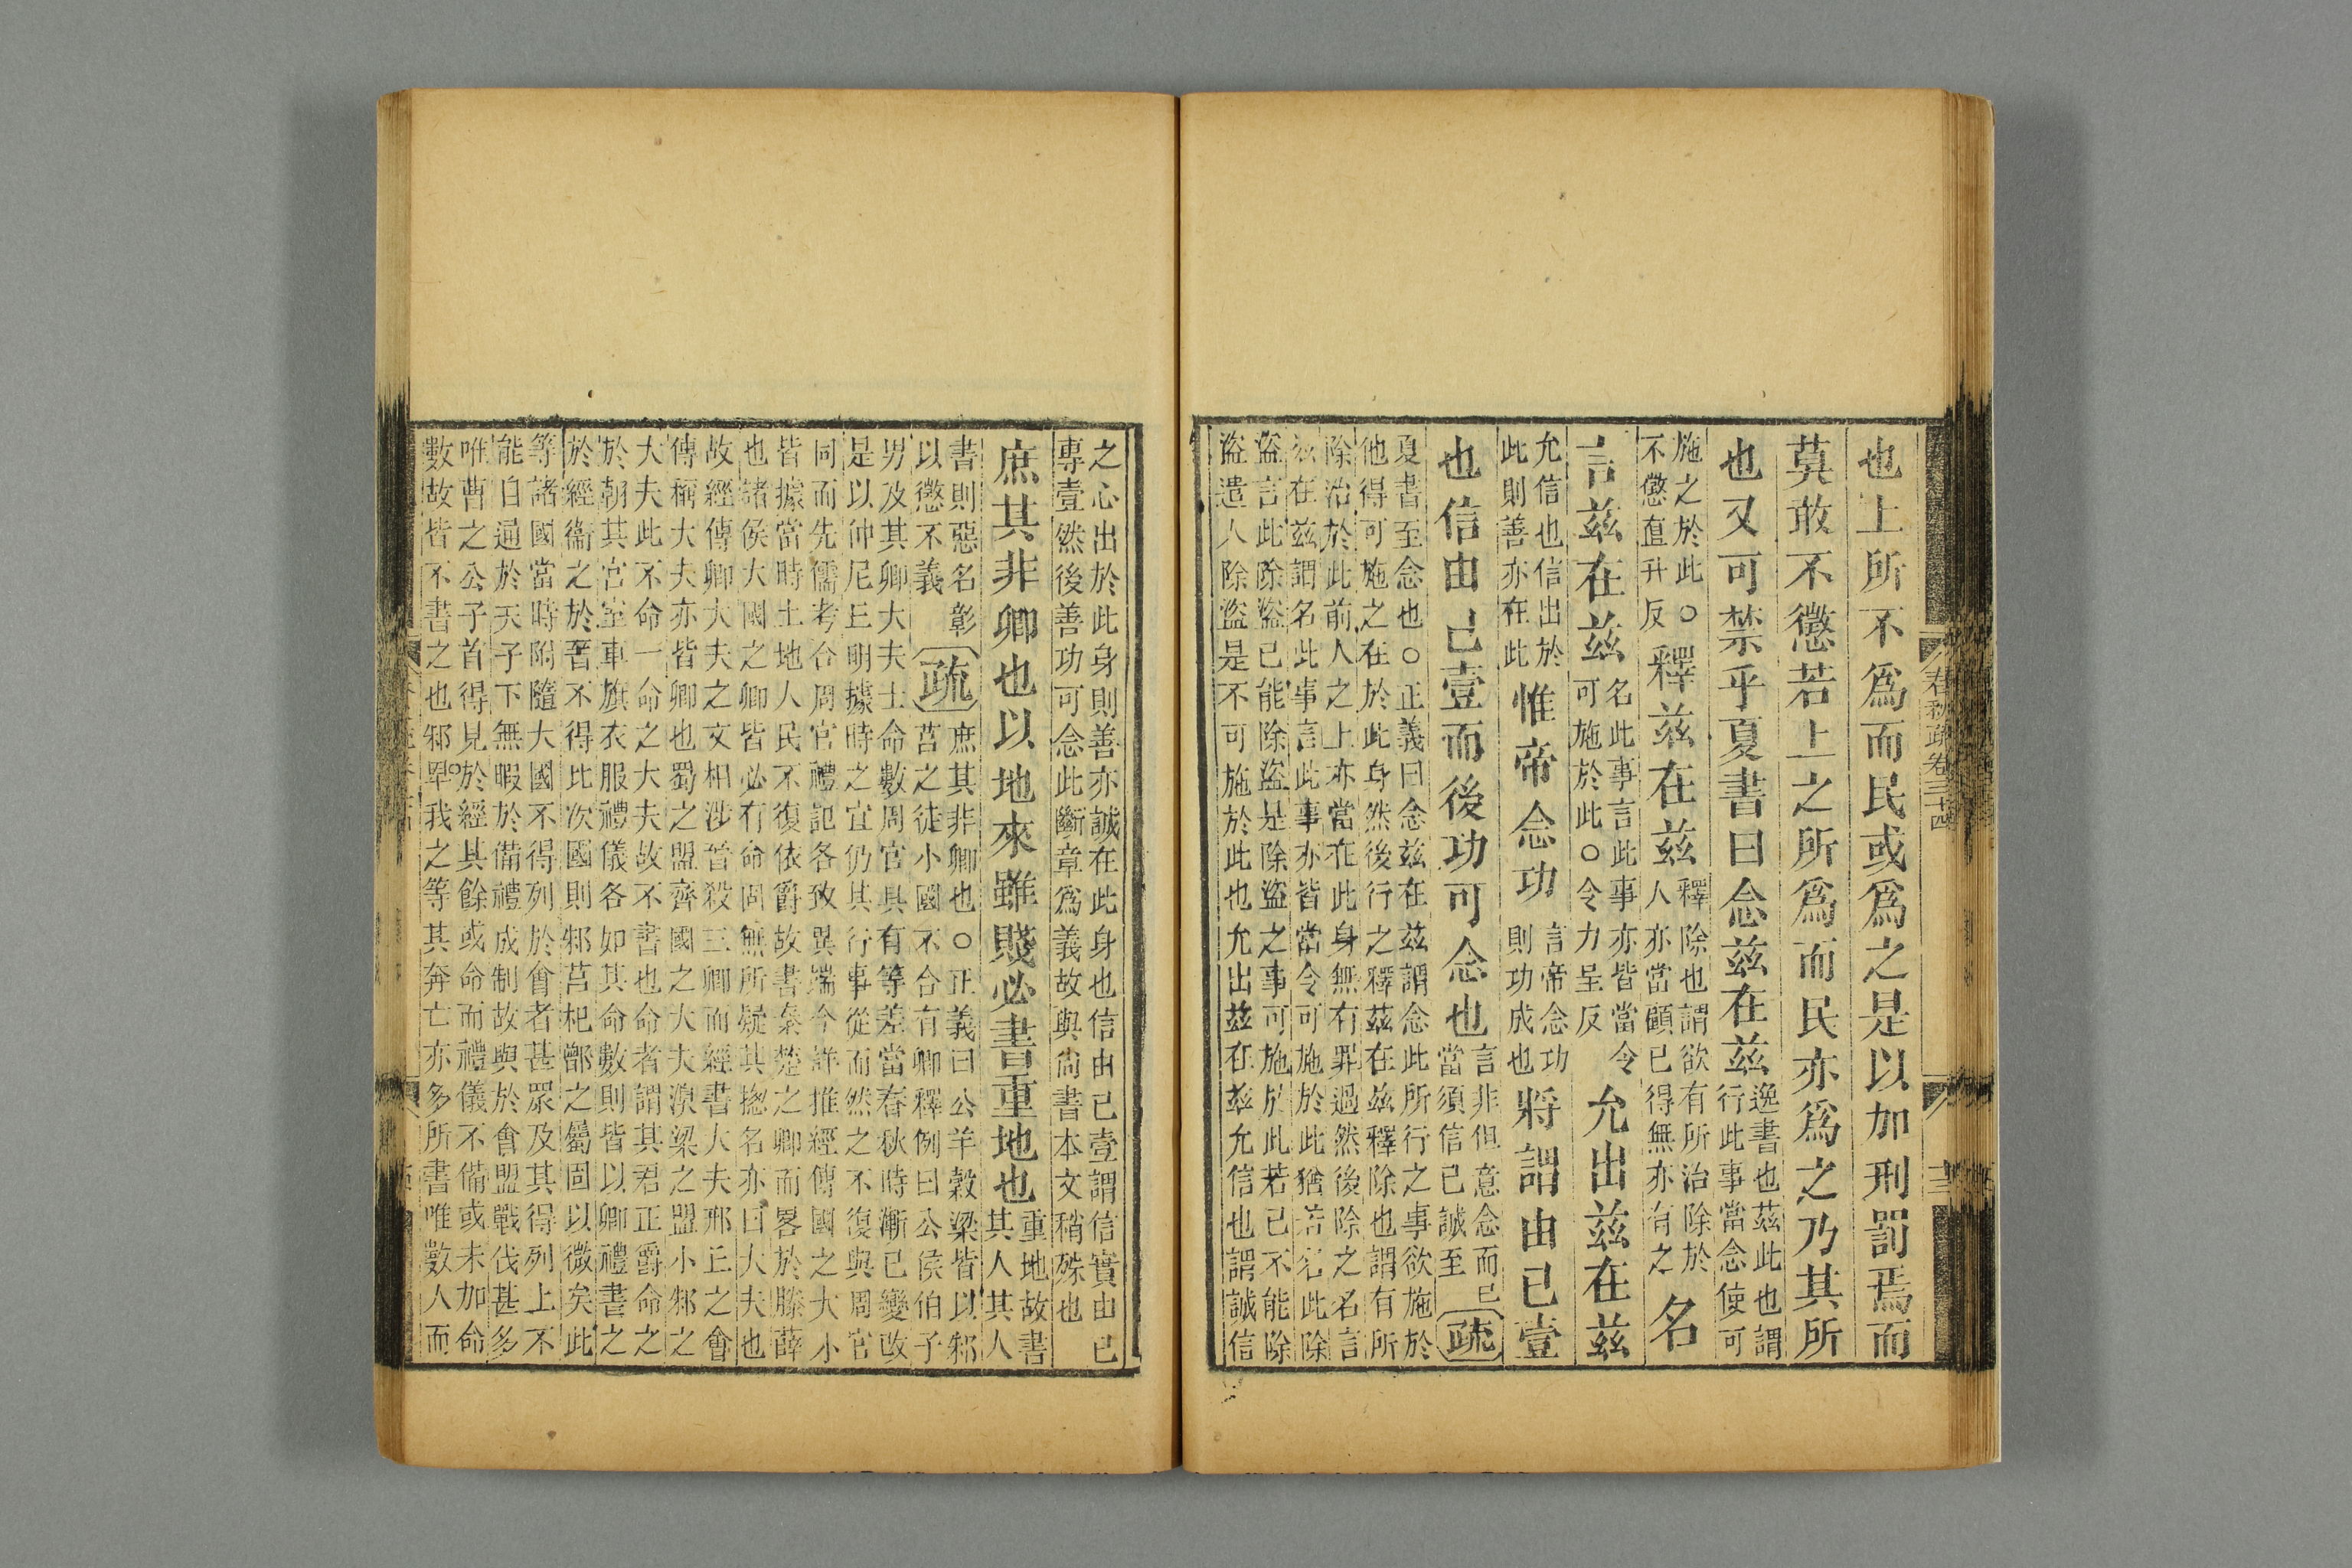 春秋疏卷三十四
也上所不爲而民或爲之是以加刑罰焉而
莫敢不懲若上之所爲而民亦爲之乃其所
也又可禁乎夏書曰念兹在兹逸書也茲此也謂
行此事當念使可
施之於此○
不懲直升反釋兹在兹釋除也謂欲有所治除於
人亦當顧已得無亦有之名
言兹在兹名此事言此事亦皆當令
可施於此○令力呈反允出兹在兹
允信也信出於
此則善亦在此惟帝念功言帝念功
則功成也將謂由己壹
也信由己壹而後功可念也言非但意念而已
當須信已誠至疏
夏書至念也○正義曰念兹在兹謂念此所行之事欲施於
他得可施之在於此身然後行之釋茲在兹釋除也謂有所
除治於此前人之上亦當在此身無有罪過然後除之名言
兹在茲謂名此事言此事亦皆當令可施於此猶若名此除
盜言此除盜已能除盜是除盜之事可施於此若已不能除
盜遣人除盜是不可施於此也允出茲在茲允信也謂誠信
之心出於此身則善亦誠在此身也信由己壹謂信實由已
專壹然後善功可念此斷章爲義故與尚書本文稍殊也
庶其非卿也以地來雖賤必書重地也重地故書
其人其人
書則惡名彰
以懲不義疏庶其非卿也○正義曰公羊穀梁皆以邾
莒之徒小國不合有卿釋例曰公侯伯子
男及其卿大夫士命數周官具有等差當春秋時漸已變改
是以仲尼丘明據時之宜仍其行事從而然之不復與周官
同而先儒考合周官禮記各致異端今詳推經傳國之大小
皆據當時土地人民不復依爵故書秦楚之卿而畧於滕薛
也諸侯大國之卿皆必有命固無所疑其揔名亦曰大夫也
故經傳卿大夫之文相涉晉殺三卿而經書大夫邢丘之會
傳稱大夫亦皆卿也蜀之盟齊國之大夫溴梁之盟小邾之
大夫此不命一命之大夫故不書也命者謂其君正爵命之
於朝其宮室車旗衣服禮儀各如其命數則皆以卿禮書之
於經衞之於晉不得比次國則邾莒杞鄫之屬固以微矣此
等諸國當時附隨大國不得列於會者甚眾及其得列上不
能自通於天子下無暇於備禮成制故與於會盟戰伐甚多
唯曹之公子首得見於經其餘或命而禮儀不備或未加命
數故皆不書之也邾畀我之等其奔亡亦多所書唯數人而